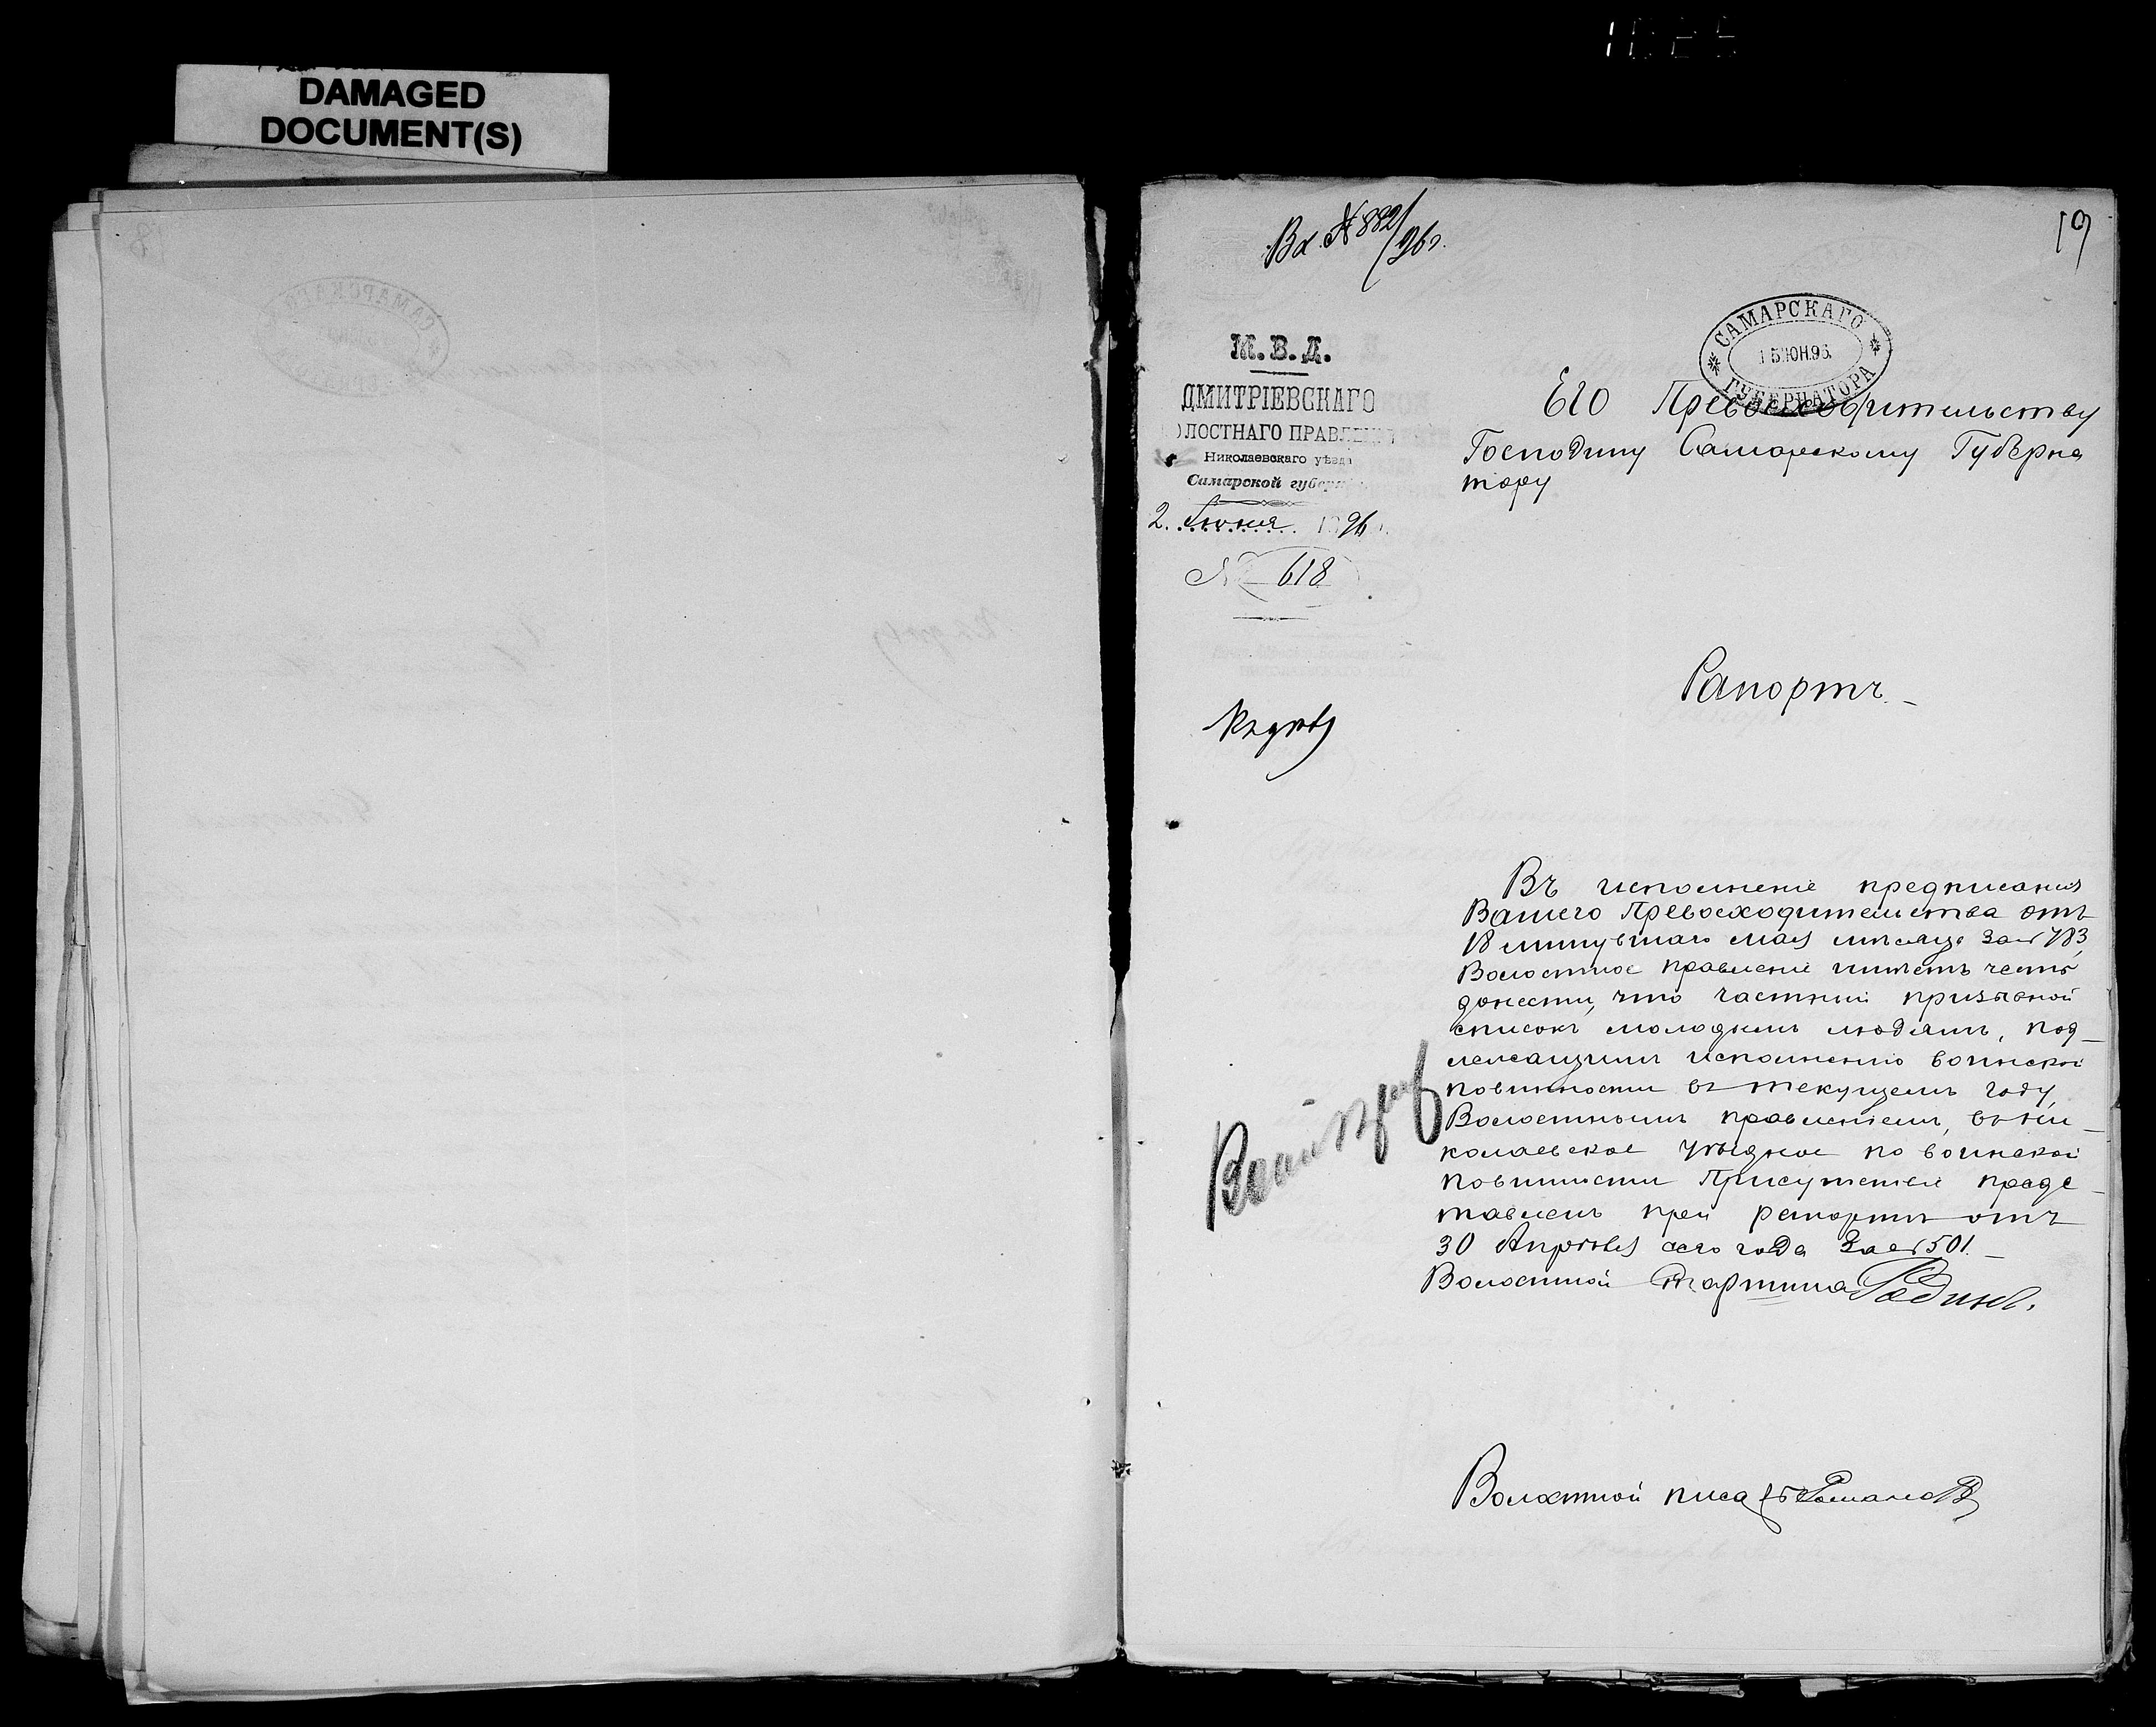 DAMAGED
DOCUMENT(S)
Вх. № 882/96 г.
19
М. В. Д.
ДМИТРІЕВСКАГО
ОЛОСТНАГО ПРАВЛЕНІ
Николаевскаго уѣзда
Самарской губерн
2. Іюня 1896
№ 618
САМАРСКАГО
15 ІЮН. 96.
ГУБЕРНАТОРА
Его Превосходительству
Господину Самарскому Губерна
тору
Рапортъ.
Въ исполненіе предписанія
Вашего Превосходительства отъ
18 минувшаго мая мѣсяца за № 783,
Волостное правленіе имѣетъ честь
донести, что частный призывной
списокъ молодымъ людямъ, под-
лежащимъ исполненію воинской
повинности въ текущемъ году,
Волостнымъ правленіемъ, въ Ни-
колаевское уѣздное по воинской
повинности Присутствіе предс-
тавленъ при рапортѣ отъ
30 Апрѣля сего года за № 501.
Волостной Старшина Родинъ.
Волостной писарь Романовъ